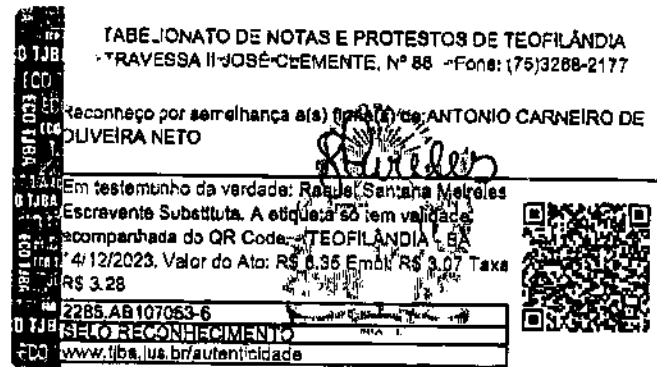 TABELIONATO DE NOTAS E PROTESTOS DE TEOFILÂNDIA
TRAVESSA II JOSÉ CLEMENTE, Nº 88 - Fone: (75)3268-2177
Reconheço por semelhança a(s) firma(s) de ANTONIO CARNEIRO DE
OLIVEIRA NETO
Em testemunho da verdade: Raquel Santana Meireles
Escrevente Substituta. A etiqueta só tem validade
acompanhada do QR Code. TEOFILÂNDIA - BA
14/12/2023. Valor do Ato: R$ 6.35 Emol: R$ 3.07 Taxa
R$ 3.28
2285.AB107053-6
SELO RECONHECIMENTO
www.tjba.jus.br/autenticidade